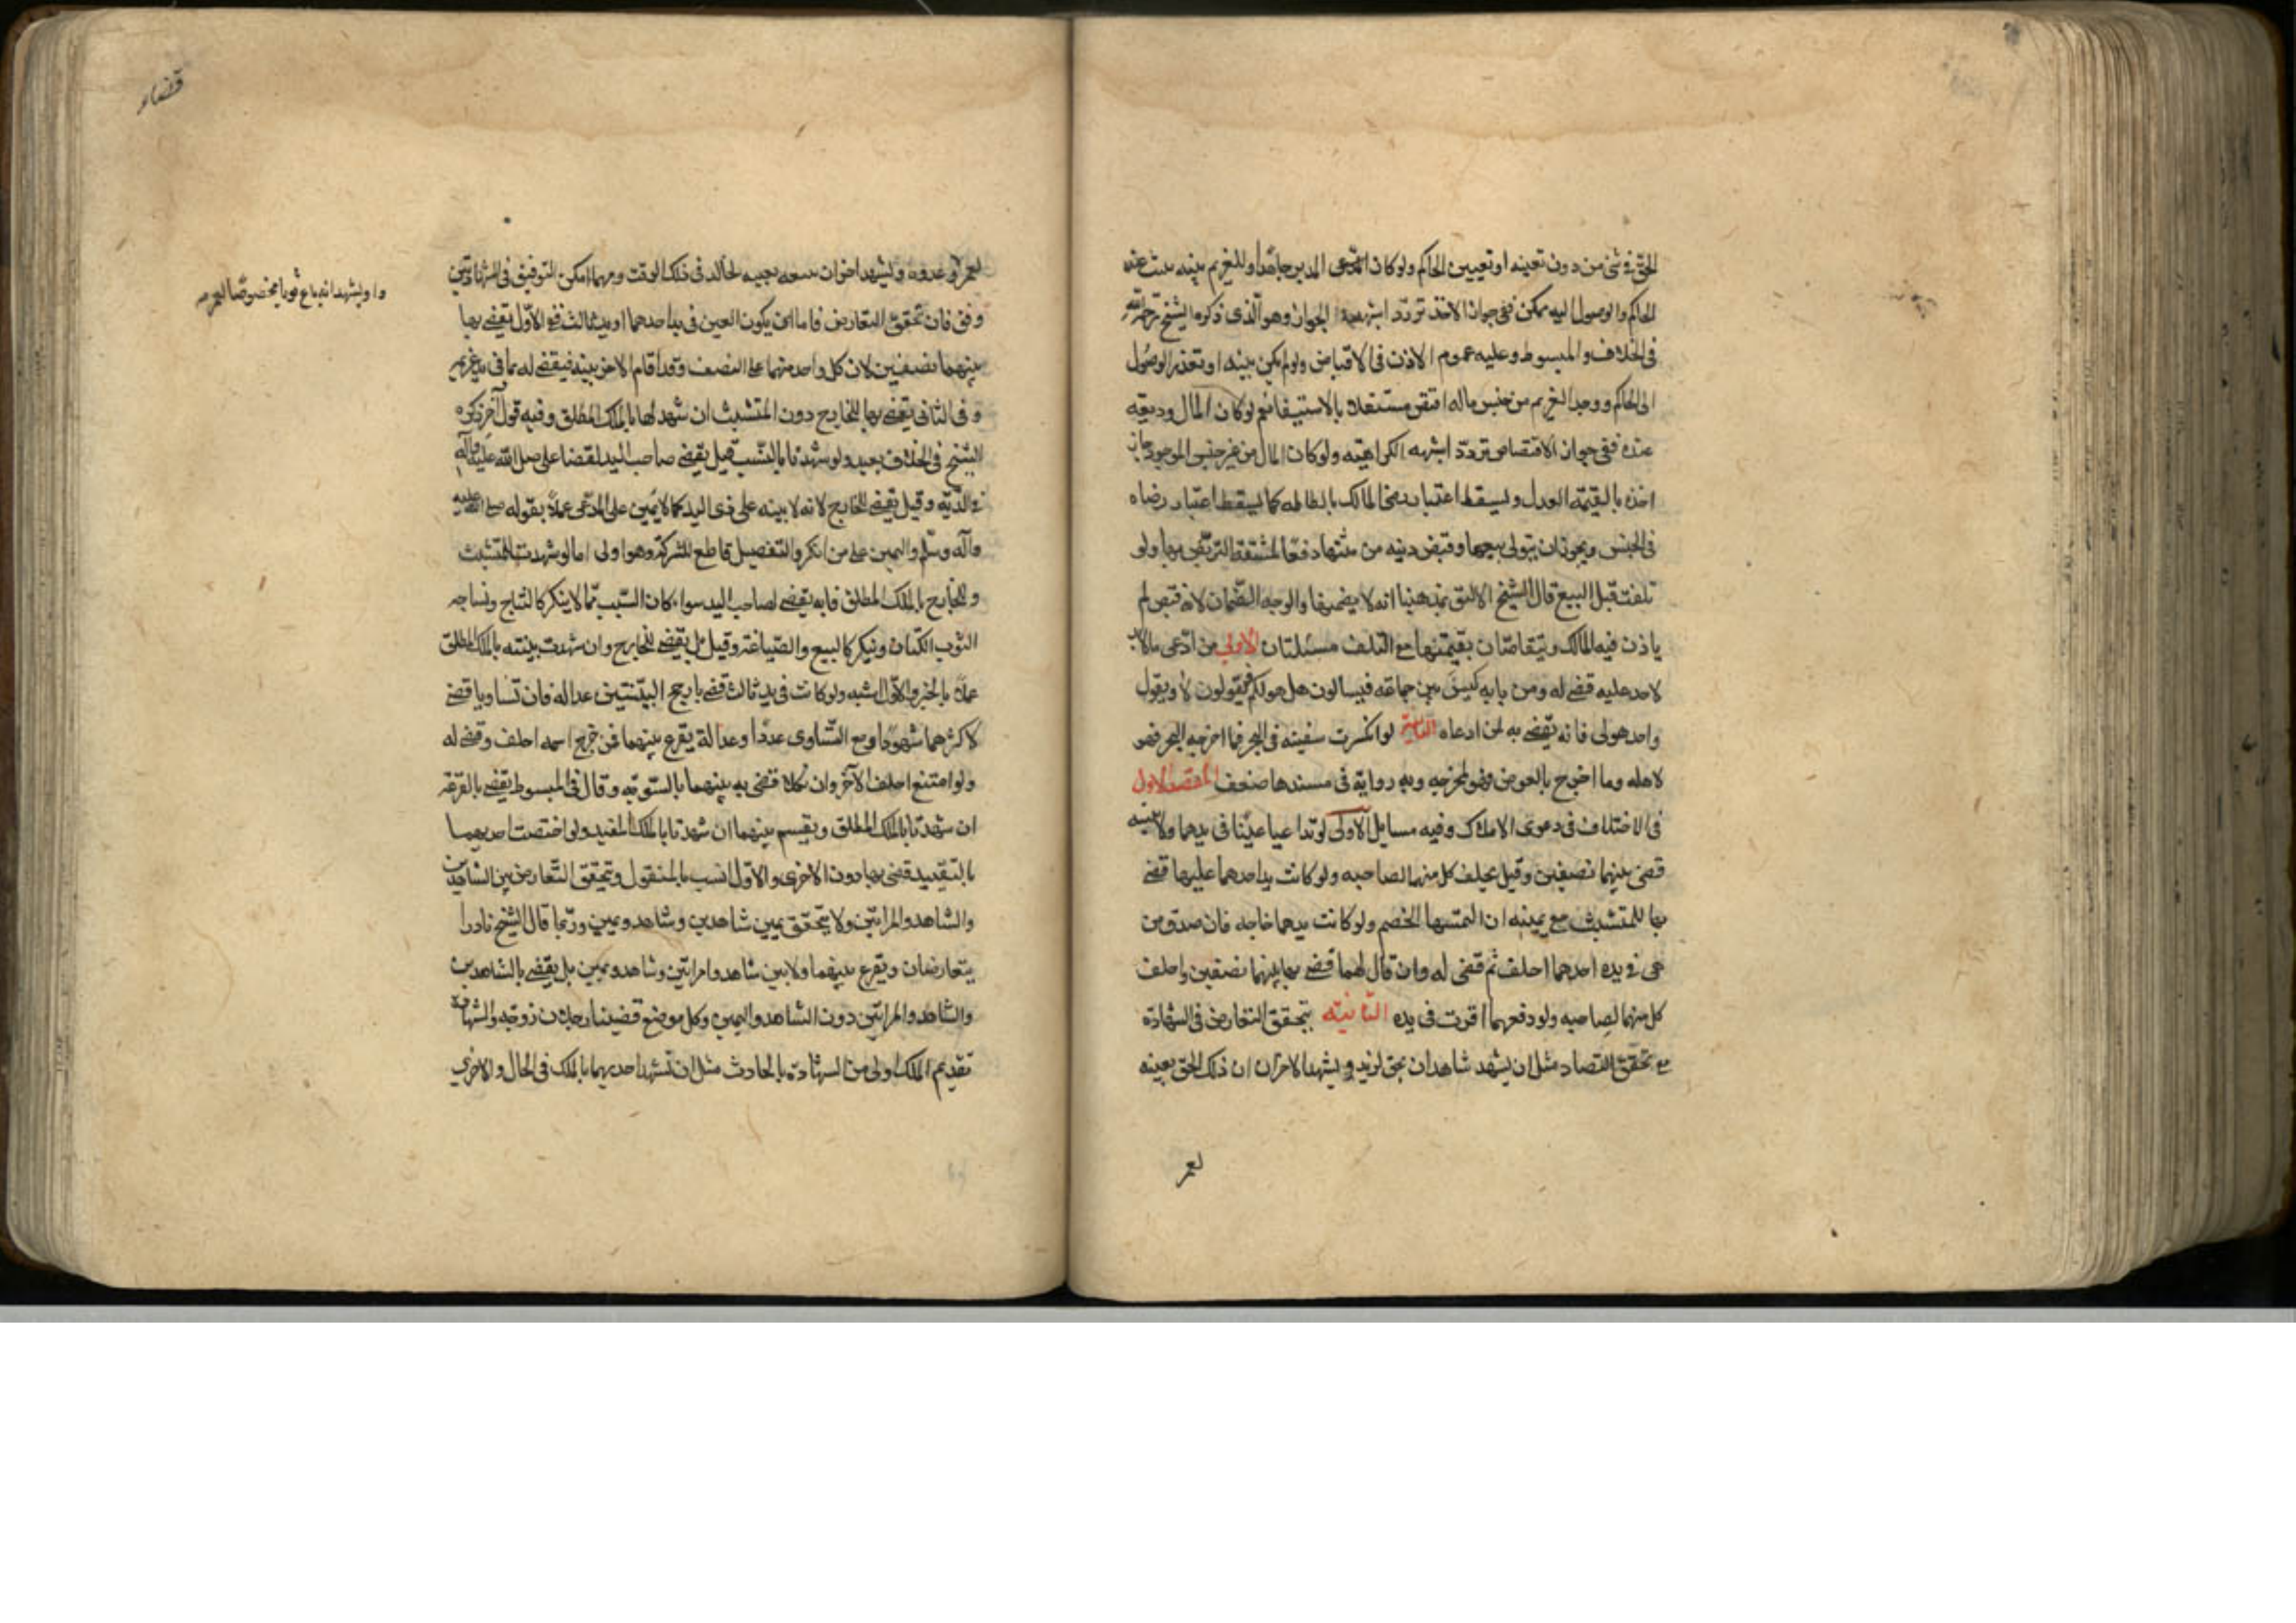 الحق فى شئ من دون تعيينه او تعيين الحاكم ولو كان المدين جاحدا وللغريم بينه يثبت عند
الحاكم والوصول اليه ممكن ففى جواز الاخذ تردّد اشبهه الجواز وهو الّذى ذكره الشيخ رحمه الله
فى الخلاف والمبسوط وعليه عموم الاذن فى الاقتصاص ولو لم يكن بينه او تعذر الوصول
الى الحاكم ووجد الغريم من جنس ماله اقتص مستقلا بالاستيفا نعم لو كان المال وديعه
عنده ففى جواز الاقتصاص تردّد اشبهه الكراهيته ولو كان المال من غير جنس الموجود جاز
اخذه بالقيمه العدل ويسقط اعتبار رضا المالك بالطاطه كما يسقط اعتبار رضاه
فى الجنس ويجوز ان يتولى بيعها وقبض دينه من ثمنها دفعا لمشقة التربّص بها ولو
تلفت قبل البيع قال الشيخ الاليق بمذهبنا انه لا يضمنها والوجه الضّمان لانه قبض لم
ياذن فيه المالك ويتقاصّان بقيمتها مع التلف مسئلتان الاولى من ادّعى مالا يد
لاحد عليه قضى له ومن بابه كيس بين جماعه فيسالون هل هو لكم فيقولون لا ويقول
واحد هو لى فانه يقضى به لمن ادعاه الثانية لو انكسرت سفينه فى البحر فما اخرجه البحر فهو
لاهله وما اخرج بالغوص فهو لمخرجه وبه رواية فى سندها ضعف المقصد الاول
فى الاختلاف فى دعوى الاملاك وفيه مسايل الاولى لو تداعيا عينا فى يدهما ولا بينه
قضى بينهما نصفين وقيل يحلف كل منهما لصاحبه ولو كانت يد احدهما عليها قضى
بها للمتشبث مع يمينه ان التمسها الخصم ولو كانت يدهما خارجه فان صدق من
هى فى يده احدهما احلف ثم قضى له وان قال لهما قضى بها بينهما نصفين واحلف
كل منهما لصاحبه ولو دفعهما اقرت فى يده الثانيه يتحقق التعارض فى الشهادة
مع تحقق التضاد مثل ان يشهد شاهدان بحق لزيد ويشهد الاخران ان ذلك الحق بعينه
لعمر
قضاء
لعمرو او غدوه ويشهد اخران ببيعه بعينه لخالد فى ذلك الوقت ومهما امكن التوفيق فى الشهادتين
وا ويشهد انه باع ثوبا مخصوصا لعمرو
وفق فان تحقق التعارض فاما ان يكون العين فى يد احدهما او يد ثالث ففى الاوّل يقضى بها
بينهما نصفين لان كل واحد منهما على النصف وقد اقام الاخر بينه فيقضى له بما فى يد غريمه
وفى الثانى يقضى بها للخارج دون المتشبث ان شهد لهما بالملك المطلق وفيه قول آخر ذكره
الشيخ فى الخلاف بعيد ولو شهدتا بالسّبب قيل يقضى صاحب اليد لقضا على صلى الله عليه وآله
فى الدّابّة وقيل يقضى للخارج لانه لا بينه على ذى اليد كما لا يمين على المدّعى عملا بقوله صلى الله عليه
وآله وسلم واليمين على من انكر والتفصيل قاطع للشركة وهو اولى اما لو شهدت للمتشبث
وللخارج بالملك المطلق فانه يقضى لصاحب اليد سواء كان السّبب مما لا ينكر كالنتاج ونساجه
الثوب الكتان ويتكرر كالبيع والصياغة وقيل بل يقضى للخارج وان شهدت بينته بالملك المطلق
عملا بالخبر والاوّل اشبه ولو كانت فى يد ثالث قضى بارجح البيّنتين عداله فان تساويا قضى
لاكثرهما شهودا ومع التساوى عددا وعدالة يقرع بينهما فمن خرج اسمه احلف وقضى له
ولو امتنع احلف الآخر وان نكلا قضى به بينهما بالسّويّه وقال فى المبسوط يقضى بالقرعة
ان شهدتا بالملك المطلق ويقسم بينهما ان شهدتا بالملك المقيد ولو اختصت احديهما
بالتقييد قضى بها دون الاخرى والاوّل انسب بالمنقول ويتحقق التّعارض بين الشاهدين
والشاهد والمراتين ولا يتحقق بين شاهدين وشاهد ويمين وربّما قال الشيخ نادرا
يتعارضان ويقرع بينهما ولا بين شاهد وامراتين وشاهد ويمين بل يقضى بالشاهدين
والشاهد والمراتين دون الشاهد واليمين وكل موضع قضينا
تقديم الملك اولى من الشهادة بالحادث مثل ان تشهد احديهما بالملك فى الحال والاخرى